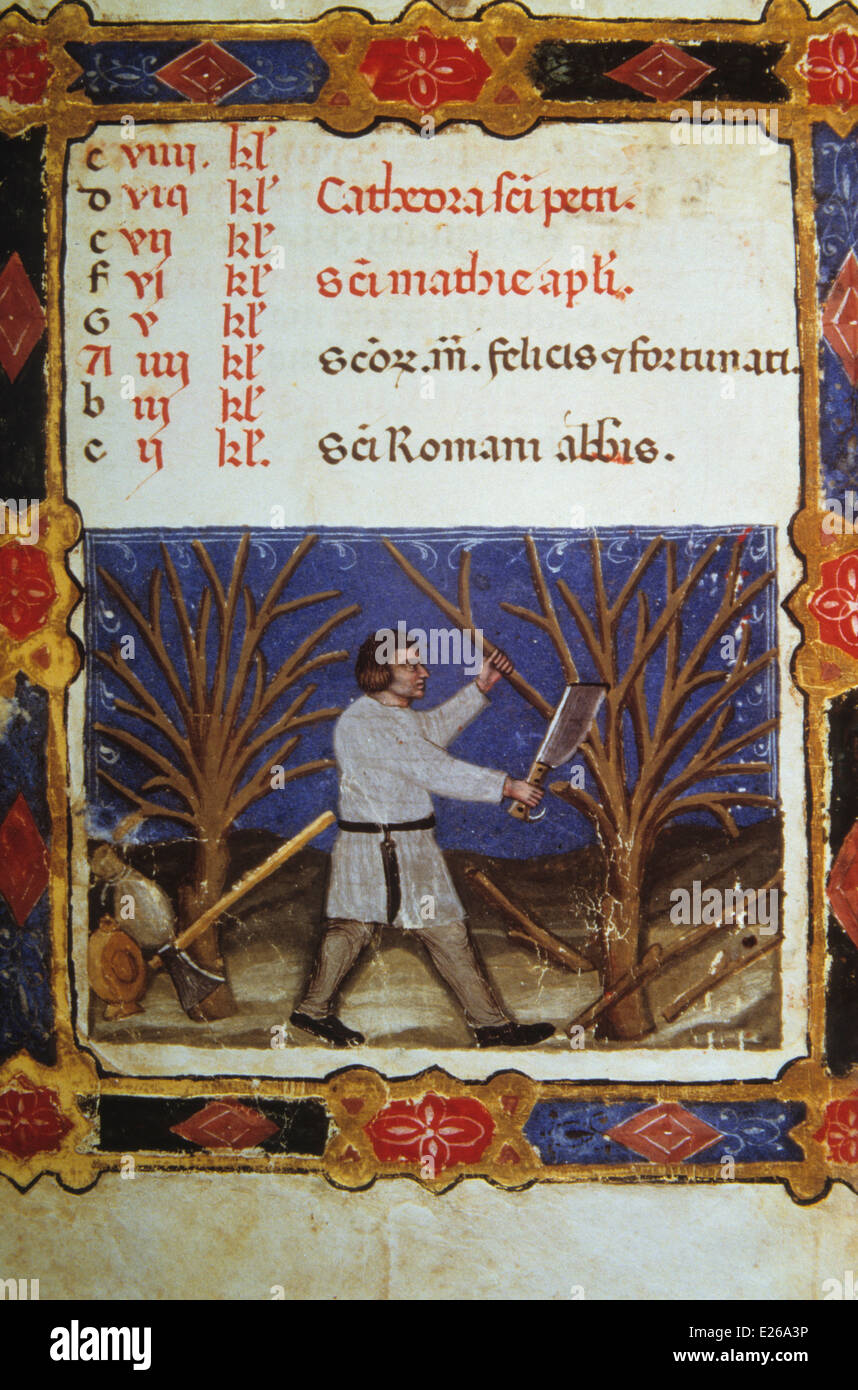 c viiii. kl'
d viij kl' Cathedra sci petri.
e vij kl'
f vj kl' Sci mathie apl'i.
G v kl'
A iiij kl' Scor̄. m̄. felicis ⁊ fortunati.
b iij kl'
c ij kl'. Sci Romani abbis.
alamy
alamy
a alamy
a
alamy
Image ID: E26A3P
www.alamy.com